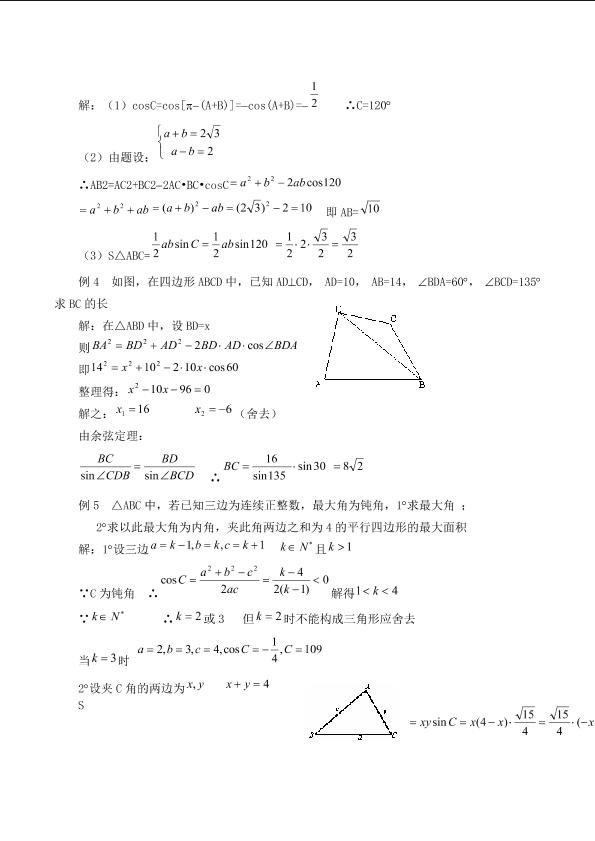 解:（1）cosC=cos[π−(A+B)]=−cos(A+B)=−1/2 ∴C=120°
（2）由题设: {a+b=2√3
a−b=2
∴AB2=AC2+BC2−2AC•BC•cosC= a²+b²−2abcos120
=a²+b²+ab=(a+b)²−ab=(2√3)²−2=10 即 AB=√10
（3）S△ABC=1/2 ab sin C=1/2 ab sin120 =1/2·2·√3/2=√3/2
例 4 如图，在四边形 ABCD 中，已知 AD⊥CD， AD=10， AB=14， ∠BDA=60°， ∠BCD=135°
求 BC 的长
解:在△ABD 中，设 BD=x
则 BA²=BD²+AD²−2BD·AD·cos∠BDA
即 14²=x²+10²−2·10x·cos60
整理得: x²−10x−96=0
解之: x₁=16 x₂=−6 （舍去）
由余弦定理:
BC/sin∠CDB=BD/sin∠BCD ∴ BC=16/sin135·sin30 =8√2
C
A
B
例 5 △ABC 中，若已知三边为连续正整数，最大角为钝角，1°求最大角 ；
2°求以此最大角为内角，夹此角两边之和为 4 的平行四边形的最大面积
解:1°设三边 a=k−1,b=k,c=k+1 k∈N* 且 k>1
∵C 为钝角 ∴ cosC=(a²+b²−c²)/2ac=(k−4)/2(k−1)<0 解得 1<k<4
∵ k∈N* ∴ k=2 或 3 但 k=2 时不能构成三角形应舍去
当 k=3 时 a=2,b=3,c=4,cosC=−1/4,C=109
2°设夹 C 角的两边为 x,y x+y=4
S =xy sin C=x(4−x)·√15/4=√15/4·(−x
A
B
2
C